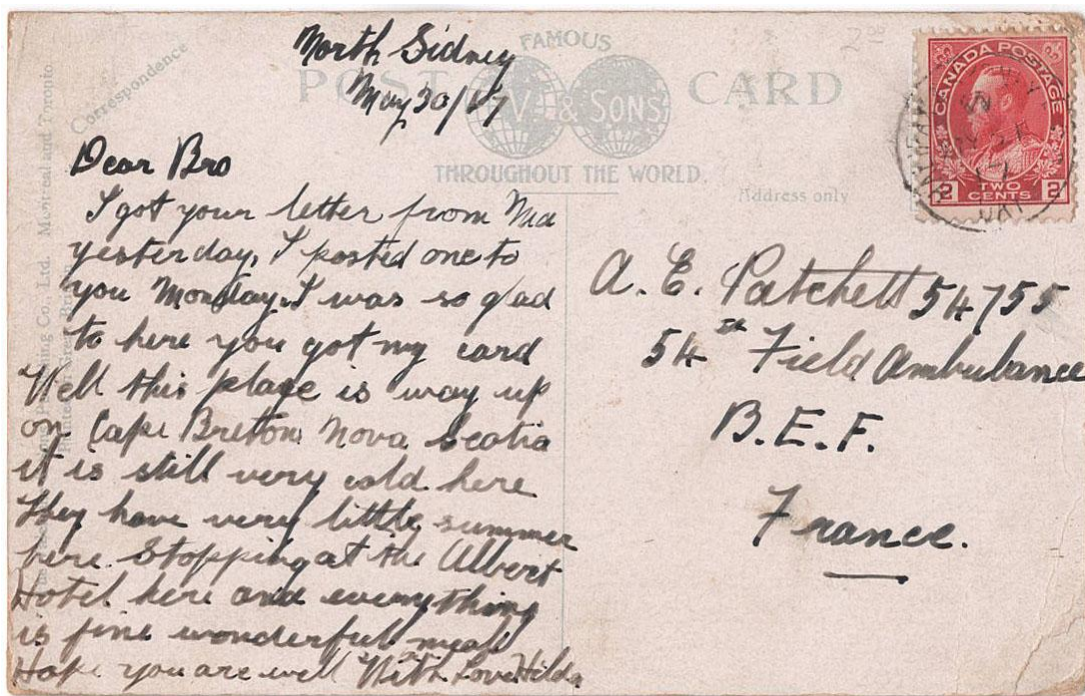 Correspondence
FAMOUS
POST CARD
V. & SONS
THROUGHOUT THE WORLD.
Address only
Montreal and Toronto
North Sidney
May 30/17
Dear Bro
I got your letter from Ma
yesterday. I posted one to
you Monday. I was so glad
to here you got my card
Well this place is way up
in Cape Breton Nova Scotia
it is still very cold here
They have very little summer
here Stopping at the Albert
Hotel here and everything
is fine wonderful meals
Hope you are well With Love Hilda
CANADA POSTAGE
2 TWO CENTS 2
A. E. Patchett 54755
54th Field Ambulance
B.E.F.
France.